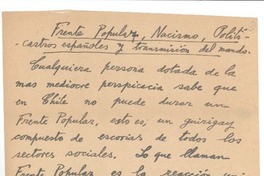 Frente Popular, Nacismo, Polití-
castros españoles y transmisión del mando.
Cualquiera persona dotada de la
mas mediocre perspicacia sabe que
en Chile no puede durar un
Frente Popular, esto es, un guirigay
compuesto de escorias de todos los
sectores sociales. Lo que llaman
Frente Popular es la reacción